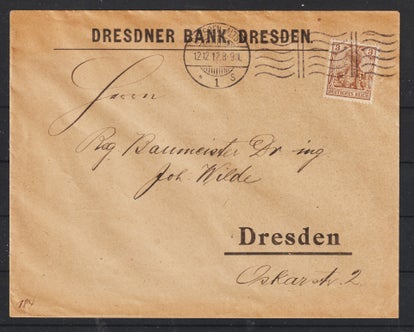 DRESDNER BANK, DRESDEN.
12.12.12.8-9N.
* 1 s
3 3
DEUTSCHES REICH
Herrn
Reg. Baumeister Dr ing
Joh. Wilde
Dresden
Oskarstr. 2